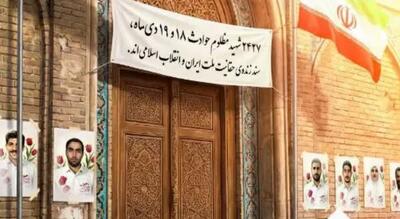 ۲۴۲۷ شهید مظلوم حوادث ۱۸ و ۱۹ دی‌ماه،
سند زنده‌ی حقانیت ملت ایران و انقلاب اسلامی‌اند.